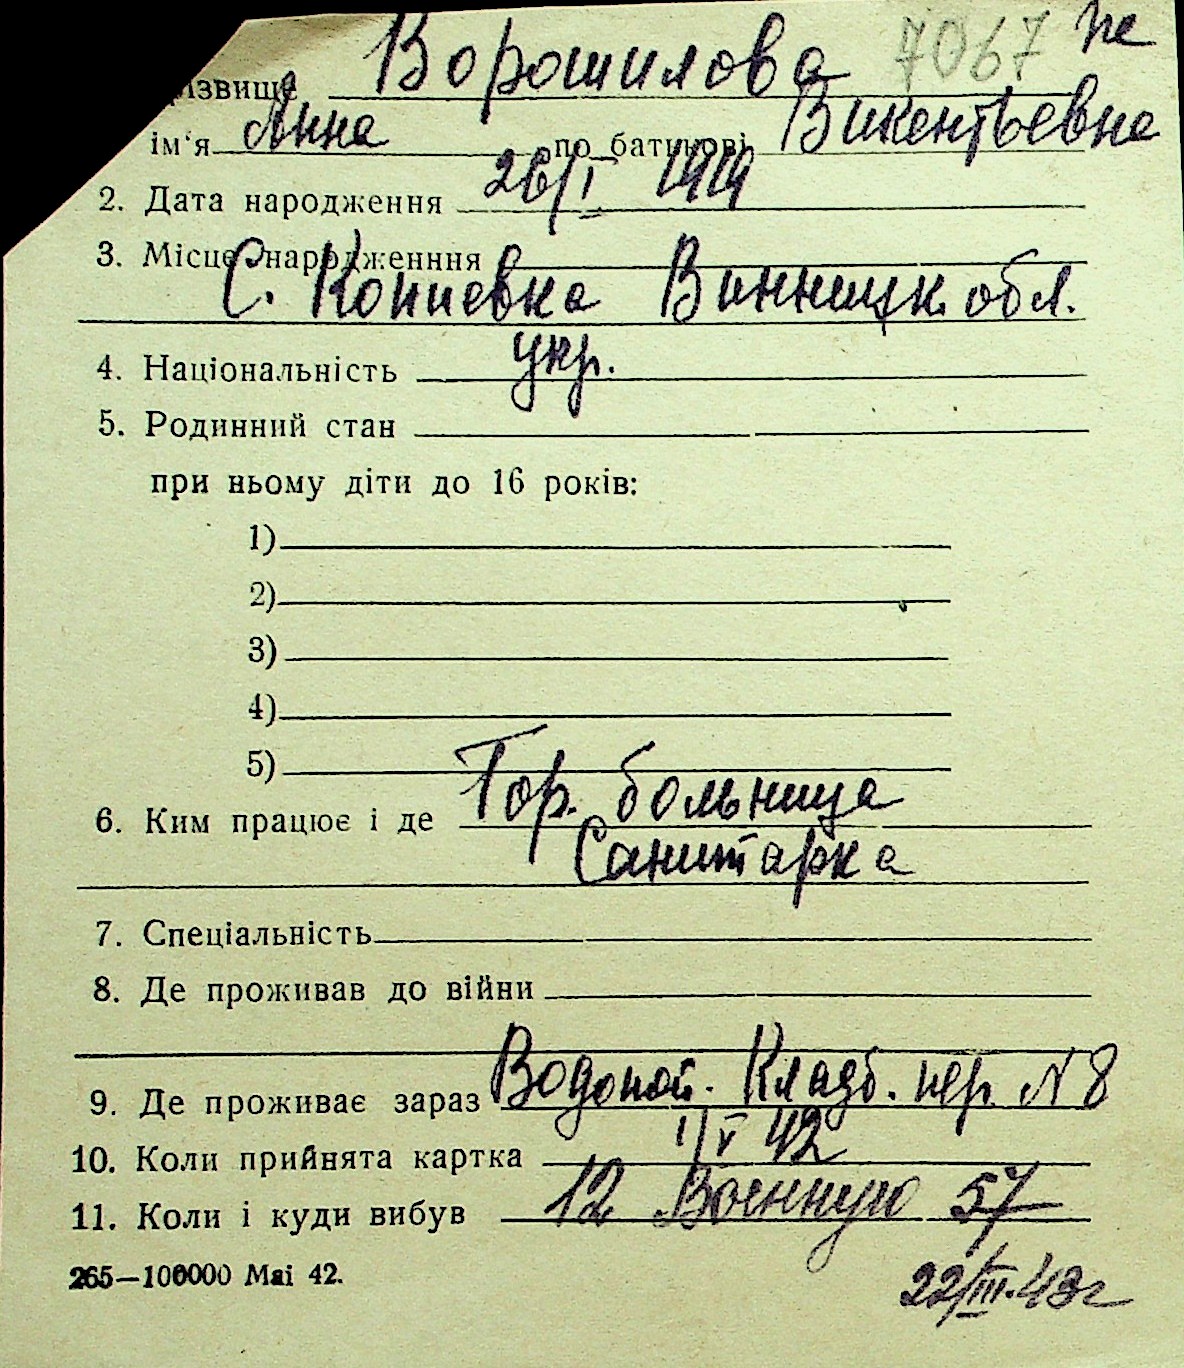 Ворошилова 7067 не
різвище
ім'я Анна по батькові Викентьевна
2. Дата народження 26/I 1919
3. Місце народженння
С. Копиевка Винницк. обл.
4. Національність укр.
5. Родинний стан
при ньому діти до 16 років:
1)
2)
3)
4)
5)
6. Ким працює і де Гор. больница
Санитарка
7. Спеціальність
8. Де проживав до війни
9. Де проживає зараз Водопой. Кладб. пер. N 8
10. Коли прийнята картка 1/V 42
11. Коли і куди вибув 12 Военную 57
265—100000 Mai 42.
22/III.43г